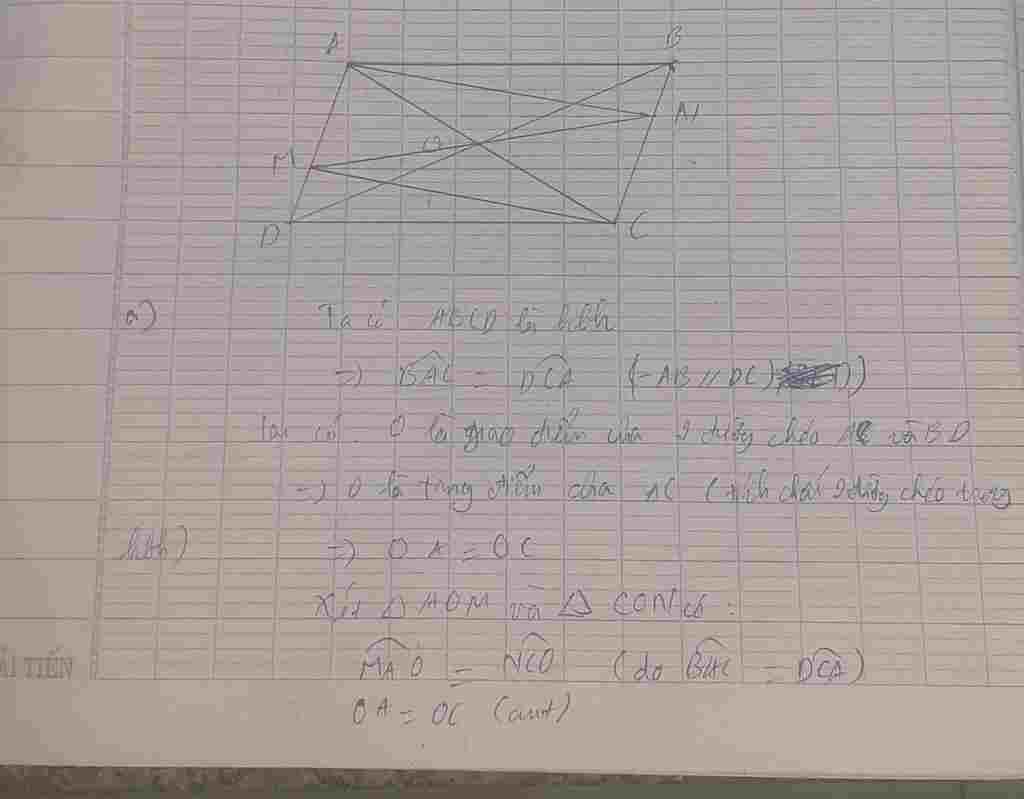 A B
N
O
M
D C
a) Ta có ABCD là hbh
=> BAC = DCA (-AB // DC)
Lại có: O là giao điểm của 2 đường chéo AC và BD
=> O là trung điểm của AC (t/ch 2 đường chéo trong
hbh) => OA = OC
Xét Δ AOM và Δ CON có:
MAO = NCO (do BAC = DCA)
ẢI TIẾN
OA = OC (cmt)